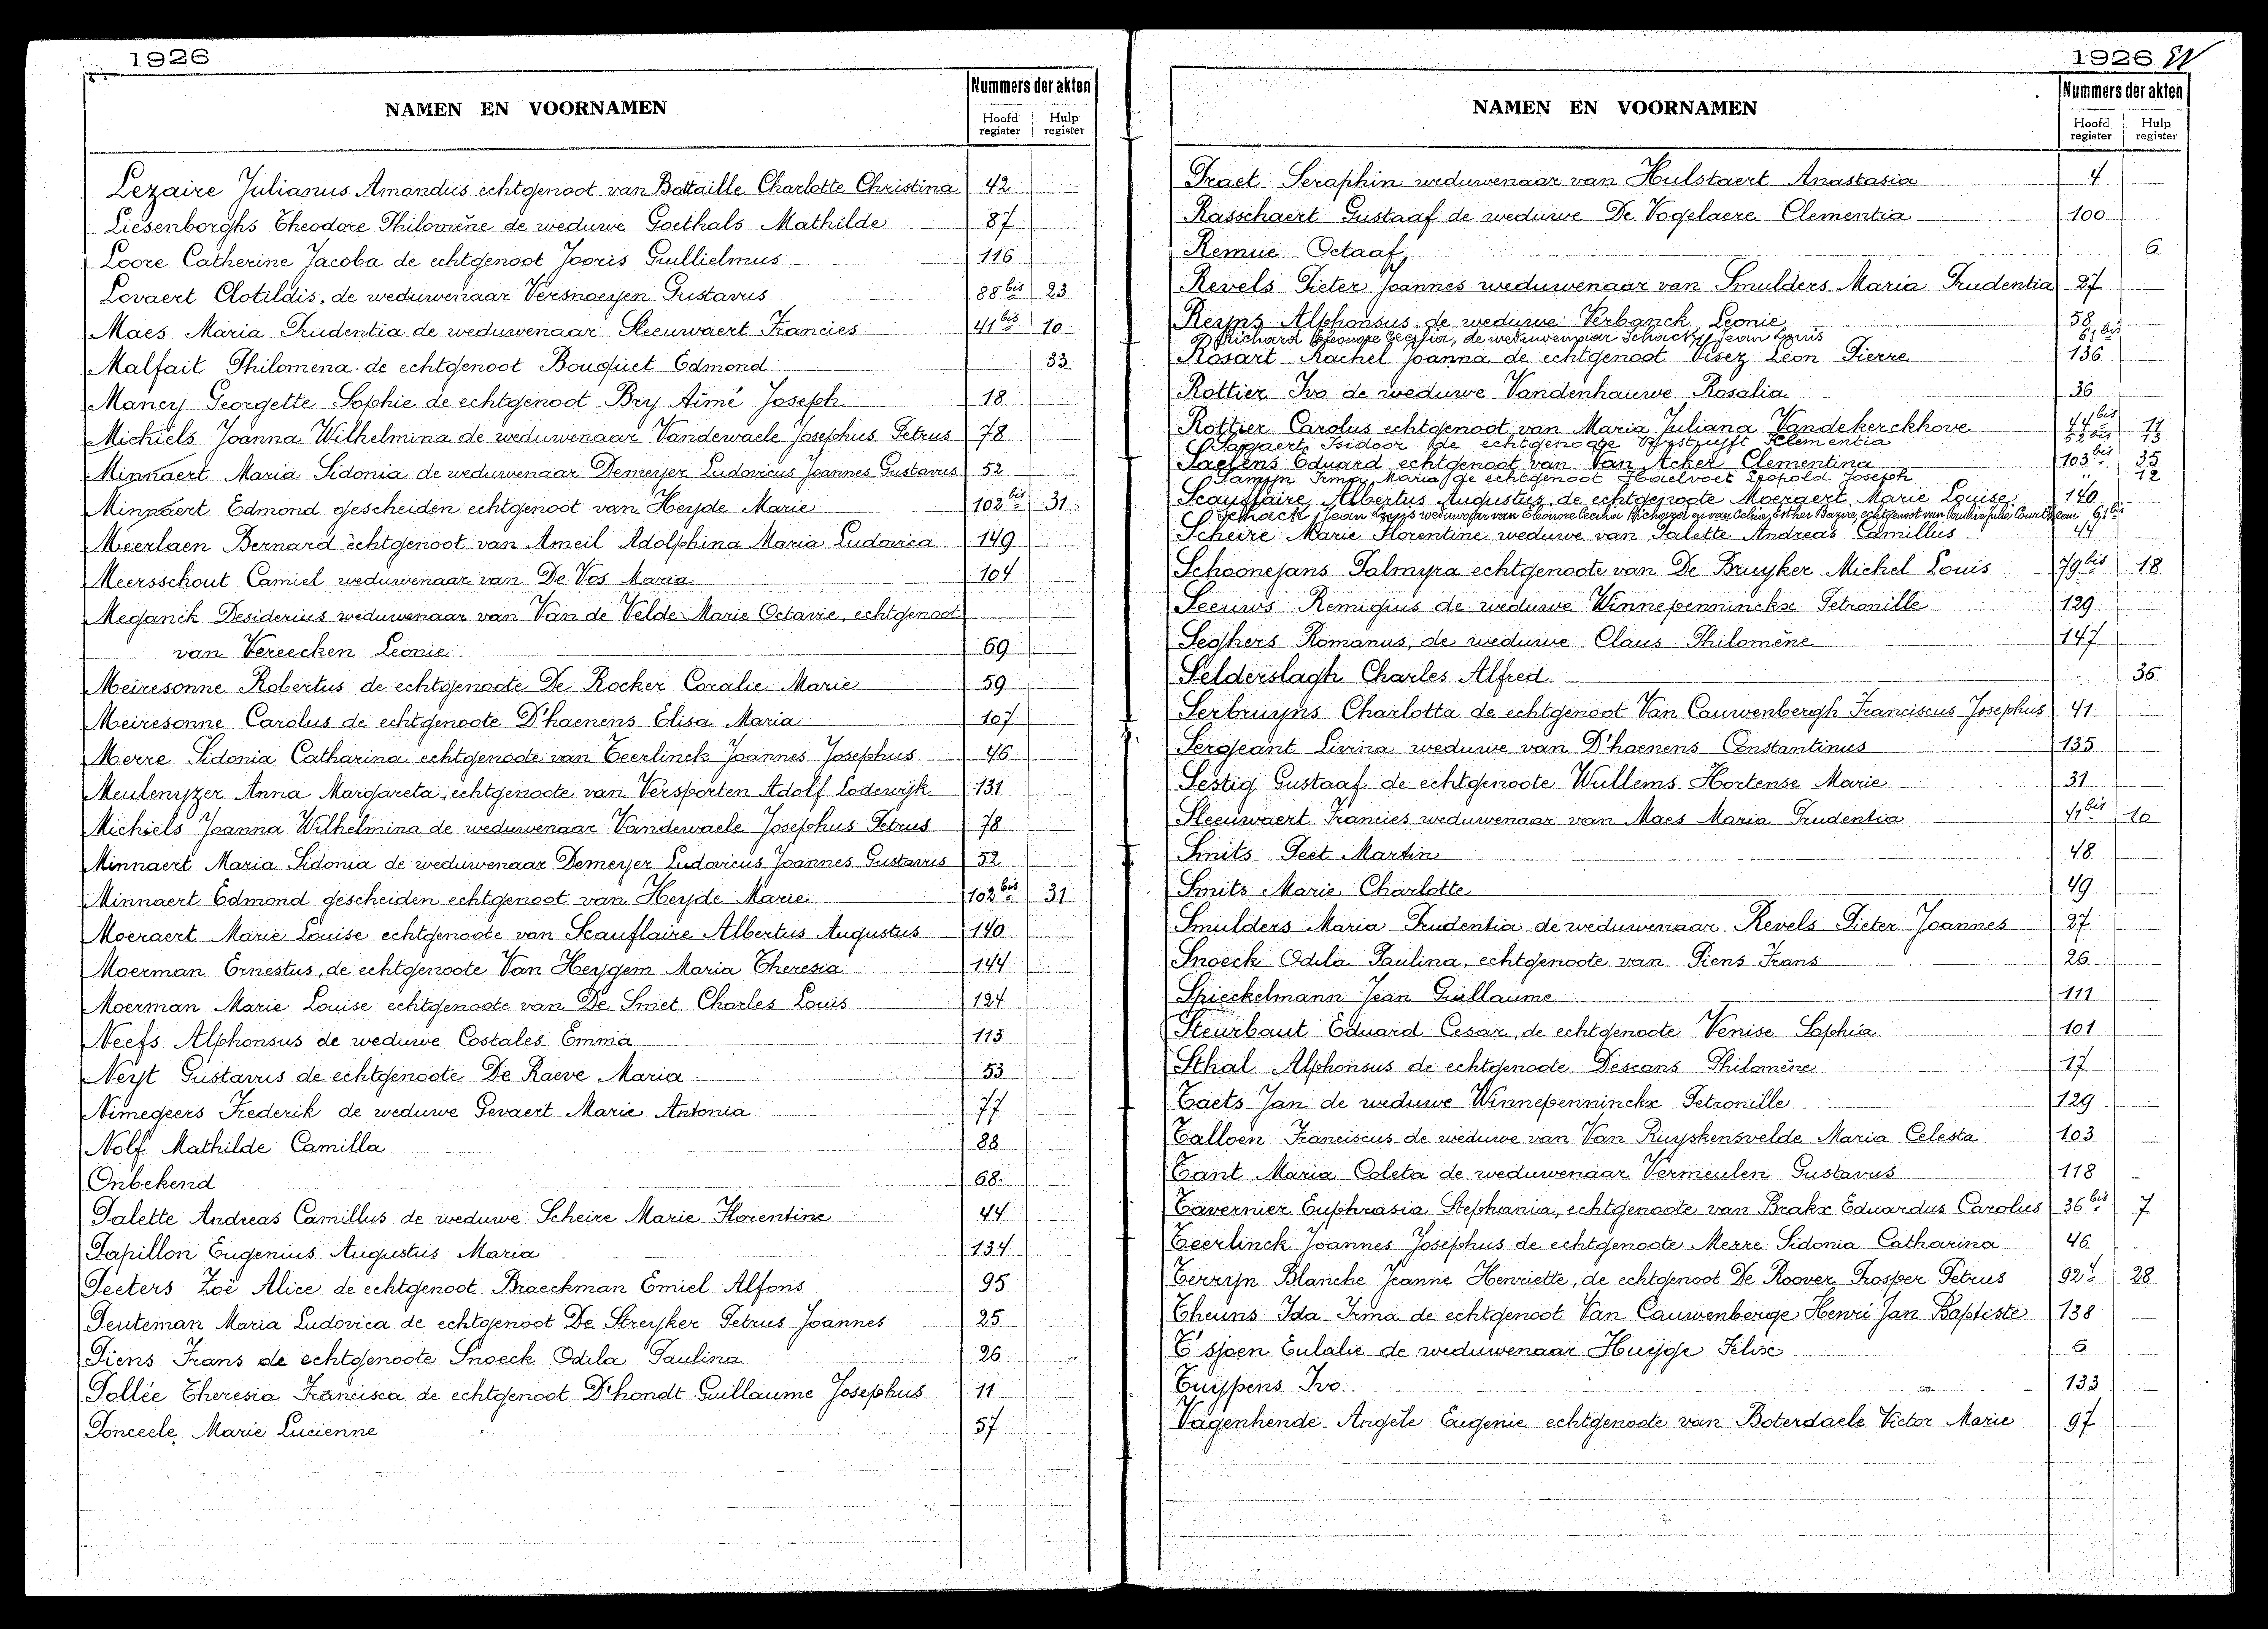 1926
NAMEN EN VOORNAMEN
Nummers der akten
Hoofd register
Hulp register
Lezaire Julianus Amandus echtgenoot van Battaille Charlotte Christina 42
Liesenborghs Theodore Philomène de weduwe Goethals Mathilde 87
Loore Catherine Jacoba de echtgenoot Jooris Guillielmus 116
Lovaert Clotildis, de weduwenaar Versnoeyen Gustavus 88bis 23
Maes Maria Prudentia de weduwenaar Sleeuwaert Francies 41bis 10
Malfait Philomena de echtgenoot Bouquet Edmond 33
Mancy Georgette Sophie de echtgenoot Bry Aimé Joseph 18
Michiels Joanna Wilhelmina de weduwenaar Vandewaele Josephus Petrus 78
Minnaert Maria Sidonia de weduwenaar Demeyer Ludovicus Joannes Gustavus 52
Minnaert Edmond gescheiden echtgenoot van Heyde Marie 102bis 31
Meerlaen Bernard echtgenoot van Ameil Adolphina Maria Ludovica 149
Meersschout Camiel weduwenaar van De Vos Maria 104
Meganck Desiderius weduwenaar van Van de Velde Marie Octavie, echtgenoot
van Vereecken Leonie 69
Meiresonne Robertus de echtgenoote De Rocker Coralie Marie 59
Meiresonne Carolus de echtgenoote D'haenens Elisa Maria 107
Merre Sidonia Catharina echtgenoote van Teerlinck Joannes Josephus 46
Meulenyzer Anna Margareta, echtgenoote van Versporten Adolf Lodewijk 131
Michiels Joanna Wilhelmina de weduwenaar Vandewaele Josephus Petrus 78
Minnaert Maria Sidonia de weduwenaar Demeyer Ludovicus Joannes Gustavus 52
Minnaert Edmond gescheiden echtgenoot van Heyde Marie 102bis 31
Moeraert Marie Louise echtgenoote van Scauflaire Albertus Augustus 140
Moerman Ernestus, de echtgenoote Van Heygem Maria Theresia 144
Moerman Marie Louise echtgenoote van De Smet Charles Louis 124
Neefs Alphonsus de weduwe Costales Emma 113
Neyt Gustavus de echtgenoote De Raeve Maria 53
Nimegeers Frederik de weduwe Gevaert Marie Antonia 77
Nolf Mathilde Camilla 88
Onbekend 68
Palette Andreas Camillus de weduwe Scheire Marie Florentine 44
Papillon Eugenius Augustus Maria 134
Peeters Zoë Alice de echtgenoot Braeckman Emiel Alfons 95
Peuteman Maria Ludovica de echtgenoot De Streyker Petrus Joannes 25
Piens Frans de echtgenoote Snoeck Odila Paulina 26
Pollée Theresia Francisca de echtgenoot D'hondt Guillaume Josephus 11
Ponceele Marie Lucienne 57
1926
NAMEN EN VOORNAMEN
Nummers der akten
Hoofd register
Hulp register
Praet Seraphin weduwenaar van Hulstaert Anastasia 4
Rasschaert Gustaaf de weduwe De Vogelaere Clementia 100
Remue Octaaf 6
Revels Pieter Joannes weduwenaar van Smulders Maria Prudentia 27
Reyns Alphonsus de weduwe Verbanck Leonie 58
Richard Eleonore Cecilia, de weduwenaar Schack Jean Louis 61bis
Rosart Rachel Joanna de echtgenoot Visez Leon Pierre 136
Rottier Ivo de weduwe Vandenhauwe Rosalia 36
Rottier Carolus echtgenoot van Maria Juliana Vandekerckhove 44bis 11
Isidoor de echtgenoote Clementia 52bis 13
Saelens Eduard echtgenoot van Van Acker Clementina 103bis 35
Samyn Irma Maria de echtgenoot Hoetvoet Leopold Joseph " 12
Scauflaire Albertus Augustus de echtgenoote Moeraert Marie Louise 140
Schack Jean Louis weduwenaar van Eleonore Cecilia Richard en van Celine Esther Bazire, echtgenoot van Julie 61bis
Scheire Marie Florentine weduwe van Palette Andreas Camillus 44
Schoonejans Palmyra echtgenoote van De Bruyker Michel Louis 79bis 18
Seeuws Remigius de weduwe Winnepenninckx Petronille 129
Seghers Romanus, de weduwe Claus Philomène 147
Selderslagh Charles Alfred 36
Serbruyns Charlotta de echtgenoot Van Cauwenbergh Franciscus Josephus 41
Sergeant Livina weduwe van D'haenens Constantinus 135
Sestig Gustaaf de echtgenoote Wullems Hortense Marie 31
Sleeuwaert Francies weduwenaar van Maes Maria Prudentia 41bis 10
Smits Peet Martin 48
Smits Marie Charlotte 49
Smulders Maria Prudentia de weduwenaar Revels Pieter Joannes 27
Snoeck Odila Paulina, echtgenoote van Piens Frans 26
Spieckelmann Jean Guillaume 111
Steurbaut Eduard Cesar, de echtgenoote Venise Sophia 101
Sthal Alphonsus de echtgenoote Descans Philomène 17
Taets Jan de weduwe Winnepenninckx Petronille 129
Talloen Franciscus de weduwe van Van Ruyskensvelde Maria Celesta 103
Tant Maria Coleta de weduwenaar Vermeulen Gustavus 118
Tavernier Euphrasia Stephania, echtgenoote van Brakx Eduardus Carolus 36bis 7
Teerlinck Joannes Josephus de echtgenoote Merre Sidonia Catharina 46
Terryn Blanche Jeanne Henriette, de echtgenoot De Roover Prosper Petrus 92 28
Theuns Ida Irma de echtgenoot Van Cauwenberge Henri Jan Baptiste 138
T'sjoen Eulalie de weduwenaar Huijge Felix 6
Tuypens Ivo 133
Vagenhende Angèle Eugenie echtgenoote van Boterdaele Victor Marie 97